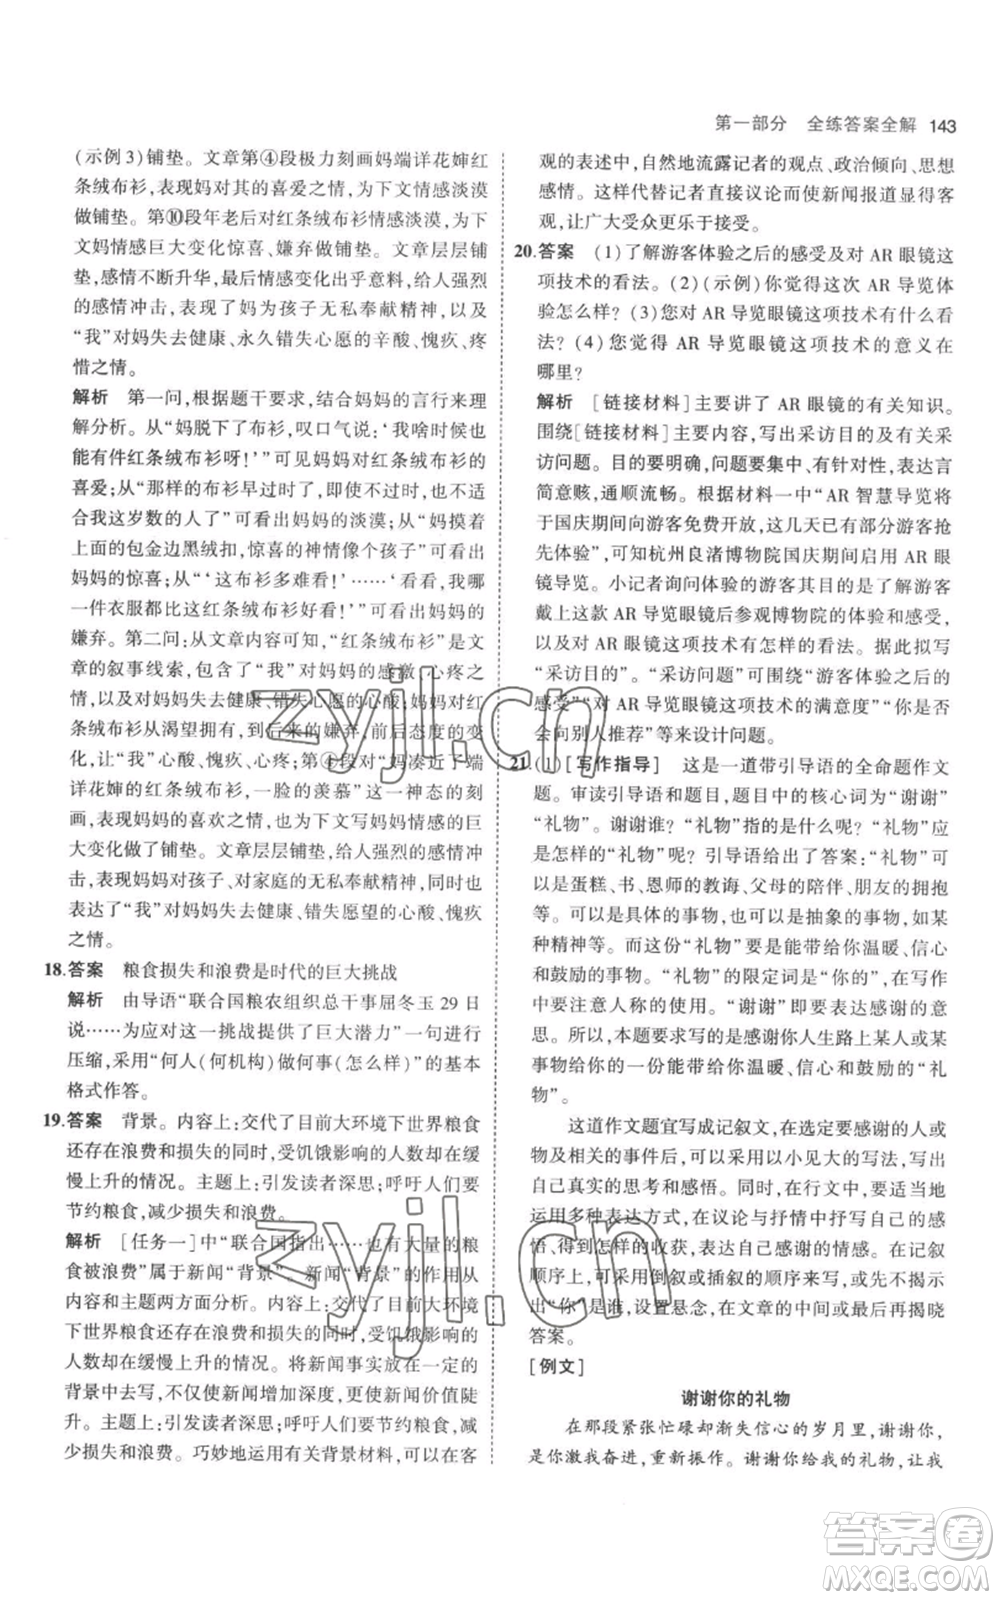 第一部分　全练答案全解　143
(示例3)铺垫。文章第④段极力刻画妈端详花婶红
条绒布衫,表现妈妈对其的喜爱之情,为下文情感淡漠
做铺垫。第⑩段年老后对红条绒布衫情感淡漠,为下
文妈情感巨大变化惊喜、嫌弃做铺垫。文章层层铺
垫,情感不断升华,最后情感变化出乎意料,给人强烈
的感情冲击,表现了妈为孩子无私奉献精神,以及
“我”对妈失去健康、永久错失心愿的辛酸、愧疚、疼
惜之情。
解析　第一问,根据题干要求,结合妈妈的言行来理
解分析。从“妈脱下了布衫,叹口气说:‘我啥时候也
能有件红条绒布衫呀!’”可见妈妈对红条绒布衫的
喜爱;从“那样的布衫早过时了,即使不过时,也不适
合我这岁数的人了”可看出妈妈的淡漠;从“妈摸着
上面的包金边黑绒扣,惊喜的神情像个孩子”可看出
妈妈的惊喜;从“‘这布衫多难看!’‘看看,我哪
一件衣服都比这红条绒布衫好看!’”可看出妈妈的
嫌弃。第二问:从文章内容可知,“红条绒布衫”是文
章的叙事线索,包含了“我”对妈妈的感激、心疼之
情,以及对妈妈失去健康、错失心愿的心酸;妈妈对红
条绒布衫从渴望拥有,到后来的嫌弃,前后态度的变
化,让“我”心酸、愧疚、心疼;第④段“妈凑近了端
详花婶的红条绒布衫,一脸的羡慕”这一神态的刻
画,表现了妈妈的喜欢之情,为下文写妈妈情感的巨
大变化做了铺垫。文章层层铺垫,给人强烈的情感冲击,
表现了妈妈对孩子、对家庭的无私奉献精神,同时也
表达了“我”对妈妈失去健康、错失愿望的心酸、愧疚
之情。
18.答案　粮食损失和浪费是时代的巨大挑战
解析　由导语“联合国粮农组织总干事屈冬玉29日
说……为应对这一挑战提供了巨大潜力”一句进行
压缩,采用“何人(何机构)做何事(怎么样)”的基本
格式作答。
19.答案　背景。内容上:交代了目前大环境下世界粮食
还存在浪费和损失的同时,受饥饿影响的人数却在缓
慢上升的情况。主题上:引发读者深思;呼吁人们要
节约粮食,减少损失和浪费。
解析　[任务一]中“联合国指出……也有大量的粮
食被浪费”属于新闻“背景”。新闻“背景”的作用从
内容和主题两方面分析。内容上:交代了目前大环境
下世界粮食存在浪费和损失的同时,受饥饿影响的
人数却在缓慢上升的情况。将新闻事实放在一定的
背景中去写,不仅使新闻增加深度,更使新闻价值陡
升。主题上:引发读者深思;呼吁人们要节约粮食,减
少损失和浪费。巧妙地运用有关背景材料,可以在客
观的表述中,自然地流露记者的观点、政治倾向、思想
感情。这样代替记者直接议论而使新闻报道显得客
观,让广大受众更乐于接受。
20.答案　(1)了解游客体验之后的感受及对AR眼镜这
项技术的看法。(2)(示例)你觉得这次AR导览体
验怎么样?(3)您对AR导览眼镜这项技术有什么看
法?(4)您觉得AR导览眼镜这项技术的意义在
哪里?
解析　[链接材料]主要讲了AR眼镜的有关知识。
围绕[链接材料]主要内容,写出采访目的及有关采
访问题。目的要明确,问题要集中、有针对性,表达言
简意赅,通顺流畅。根据材料一中“AR智慧导览将
于国庆期间向游客免费开放,这几天已有部分游客抢
先体验”,可知杭州良渚博物院国庆期间启用AR眼
镜导览。小记者询问体验的游客其目的是了解游客
戴上这款AR导览眼镜后参观博物院的体验和感受,
以及对AR导览眼镜这项技术有怎样的看法。据此拟写
“采访目的”。“采访问题”可围绕“游客体验之后的
感受”“对AR导览眼镜这项技术的满意度”“你是否
会向别人推荐”等来设计问题。
21.(1)[写作指导]　这是一道带引导语的全命题作文
题。审读引导语和题目,题目中的核心词为“谢谢”
“礼物”。谢谢谁?“礼物”指的是什么呢?“礼物”应
是怎样的“礼物”呢?引导语给出了答案:“礼物”可以
是蛋糕、书、恩师的教诲、父母的陪伴、朋友的拥抱
等。可以是具体的事物,也可以是抽象的事物,如某
种精神等。而这份“礼物”要是能带给你温暖、信心
和鼓励的“礼物”。“礼物”的限定词是“你的”,在写作
中要注意人称的使用。“谢谢”即要表达感谢的意
思。所以,本题要求写的是感谢你人生路上某人或某
事物给你的一份能带给你温暖、信心和鼓励的“礼
物”。
这道作文题宜写成记叙文,在选定要感谢的人或
物及相关的事件后,可以采用以小见大的写法,写出
自己真实的思考和感悟。同时,在行文中,要适当地
运用多种表达方式,在议论与抒情中写出自己的感
悟、得到怎样的收获,表达自己感谢的深情。在记叙
顺序上,可以采用倒叙或插叙的顺序来写,先不揭示
出“你”是谁,设置悬念,在文章的中间或最后再揭晓
答案。
[例文]
谢谢你的礼物
在那段紧张忙碌却渐失信心的岁月里,谢谢你,
是你激我奋进,重新振作。谢谢你给我的礼物,让我
zyjl.cn
zyjl.cn
答案圈
MXQE.COM